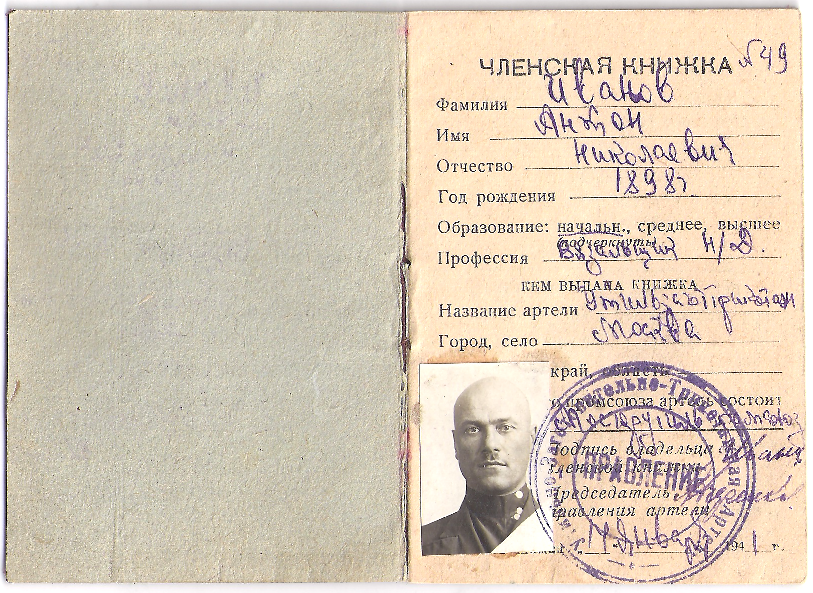 ЧЛЕНСКАЯ КНИЖКА №49
Фамилия Иванов
Имя Антон
Отчество Николаевич
Год рождения 1898г
Образование: начальн., среднее, высшее
(подчеркнуть)
Профессия Вязальщик Н/Д.
КЕМ ВЫДАНА КНИЖКА
Название артели
Город, село Москва
край, область
промсоюза артель состоит
подпись владельца
членской книжки
ПРАВЛЕНИЕ
Председатель
правления артели
17 Января 1941 г.